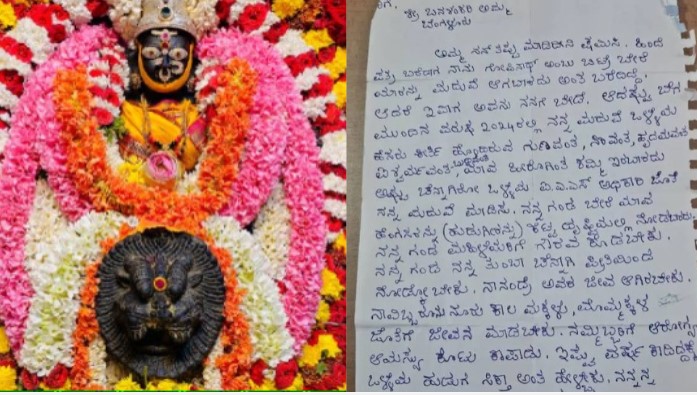 ಗೆ.
ಶ್ರೀ ಬನಶಂಕರಿ ಅಮ್ಮ
ಬೆಂಗಳೂರು
ಅಮ್ಮ ನನ್ನ ತಪ್ಪು ಮಾಡಿದೀನಿ ಕ್ಷಮಿಸಿ. ಹಿಂದೆ
ಪತ್ರ ಬರೆದಾಗ ನಾನು ಅಂಬು ಬಿಟ್ಟು ಬೇರೆ
ಯಾರನ್ನು ಮದುವೆ ಆಗಬಾರದು ಅಂತ ಬರೆದಿದ್ದೆ.
ಆದರೆ ಇವಾಗ ಅವನು ನನಗೆ ಬೇಡ. ಆದಷ್ಟು ಬೇಗ
ಮುಂದಿನ ವರುಷ 2024ರಲ್ಲಿ ನನ್ನ ಮದುವೆ ಒಳ್ಳೆಯ
ಹೆಸರು ಕೀರ್ತಿ ಹೊಂದಿರುವ ಗುಣವಂತ, ಸಿರಿವಂತ, ಹೃದಯವಂತ
ಐಶ್ವರ್ಯವಂತ, ಮಾವ ಹೀರೊಗಿಂತ ಕಮ್ಮಿ ಇರಬಾರದು
ಅಷ್ಟು ಚೆನ್ನಾಗಿರೋ ಒಳ್ಳೆಯ ಐ.ಎ.ಎಸ್ ಅಧಿಕಾರಿ ಜೊತೆ
ನನ್ನ ಮದುವೆ ಮಾಡಿಸು. ನನ್ನ ಗಂಡ ಬೇರೆ ಯಾವ
ಹೆಂಗಸನ್ನು (ಹುಡುಗಿಯನ್ನು) ಕೆಟ್ಟ ದೃಷ್ಟಿಯಲ್ಲಿ ನೋಡಬಾರದು
ನನ್ನ ಗಂಡ ಮಹಿಳೆಯರಿಗೆ ಗೌರವ ಕೊಡಬೇಕು.
ನನ್ನ ಗಂಡ ನನ್ನ ತುಂಬಾ ಚೆನ್ನಾಗಿ ಪ್ರೀತಿಯಿಂದ
ನೋಡ್ಕೋಬೇಕು. ನಾನಂದ್ರೆ ಅವರ ಜೀವ ಆಗಿರಬೇಕು.
ನಾವಿಬ್ಬರೂ ನೂರು ಕಾಲ ಮಕ್ಕಳು, ಮೊಮ್ಮಕ್ಕಳ
ಜೊತೆಗೆ ಜೀವನ ಮಾಡಬೇಕು. ನಮ್ಮಿಬ್ಬರಿಗೆ ಆರೋಗ್ಯ
ಆಯಸ್ಸು ಕೊಟ್ಟು ಕಾಪಾಡು. ಇಷ್ಟು ವರ್ಷ ಕಾದಿದ್ದಕ್ಕೆ
ಒಳ್ಳೆಯ ಹುಡುಗ ಸಿಕ್ತಾ ಅಂತ ಹೇಳ್ಬೇಕು. ನನ್ನನ್ನ